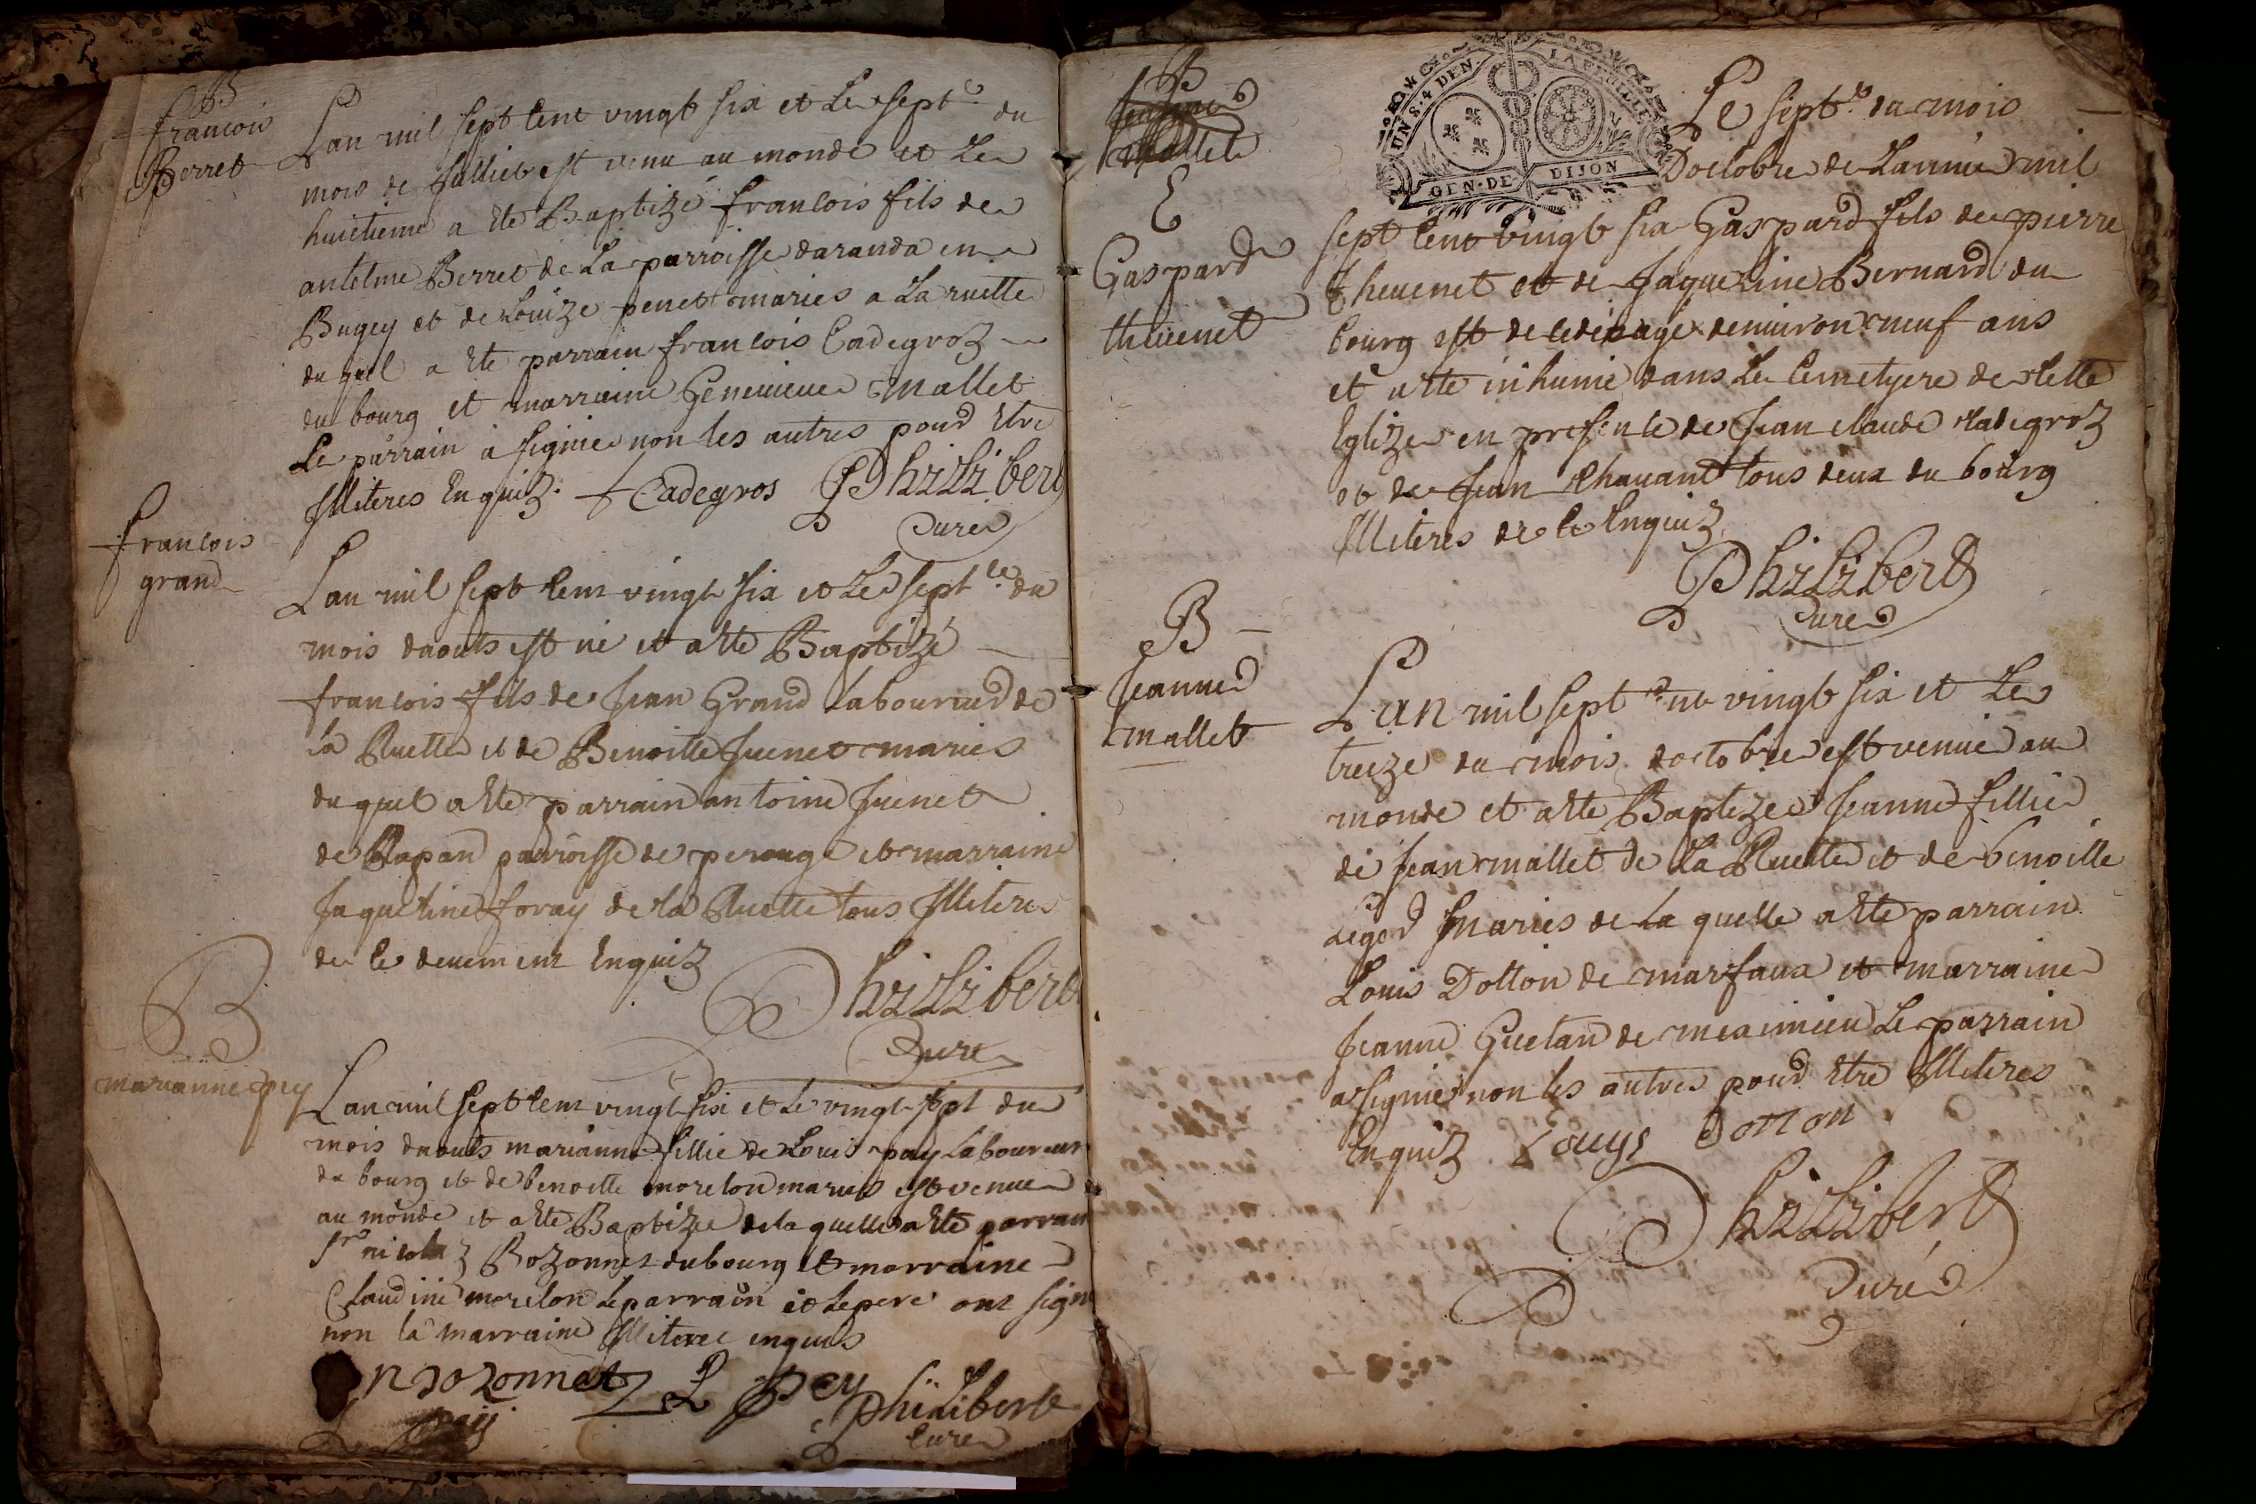 B
francois
Berret
Lan mil sept cent vingt six et Le sept.e du
mois de Julliet est venu au monde et Le
huictieme a ete Baptizé francois fils de
antelme Berret de La parroisse daranda en
Bugey et de Louize penet mariés a La ruette
du quel a ete parrain francois Cadegroz
du bourg et marraine Genevieve mallet
Le parrain a signié non les autres pour etre
Illiteres Enquiz. f Cadegros Philibert
Curé
francois
grand
Lan mil sept cent vingt six et Le sept.le du
mois daouts est né et a ete Baptizé
francois fils de Jean Grand Laboureur de
la Ruette et de Benoitte Juenet mariés
du quel a ete parrain antoine Juenet
de Rapan parroisse de perouge et marraine
Jaqueline foray de la Ruette tous Illiteres
de ce deuement Enquiz
Philibert
Curé
B
marianne pey
Lan mil sept cent vingt six et Le vingt sept du
mois daouts marianne fillie de Louis pay Laboureur
du bourg et de benoitte morelon mariés est venue
au monde et a ete Baptizée de la quelle a ete parrain
sr nicolaz Bozonnet du bourg et marraine
Claudine morelon Le parrain et Le pere ont signé
non la marraine Illiteree enquis
n bozonnet L Pey
Philibert
Curé
B
Jeanne
Mallet
E
Gaspard
theuenet
DEUX S. 4 DEN. LA FEUILLE
GEN. DE DIJON
Le sept.e du mois
Doctobre de Lannée mil
sept cent vingt six Gaspard fils de pierre
Theuenet et de Jaqueline Bernard du
bourg est decedé age denuiron neuf ans
et a ete inhumé dans Le Cemetyere de cette
Eglize en presence de Jean claude Cadegroz
et de Jean Chauant tous deux du bourg
Illiteres de ce Enquiz
Philibert
Curé
B
Jeanne
mallet
Lan mil sept cent vingt six et Le
treize du mois doctobre est venue au
monde et a ete Baptizée Jeanne fillie
de Jean mallet de La Ruette et de benoitte
Leger mariés de La quelle a ete parrain
Louis Dotton de marfaux et marraine
Jeanne Guetan de meximieu Le parrain
a signié non les autres pour etre Illiteres
Enquiz Louys Dotton
Philibert
Curé